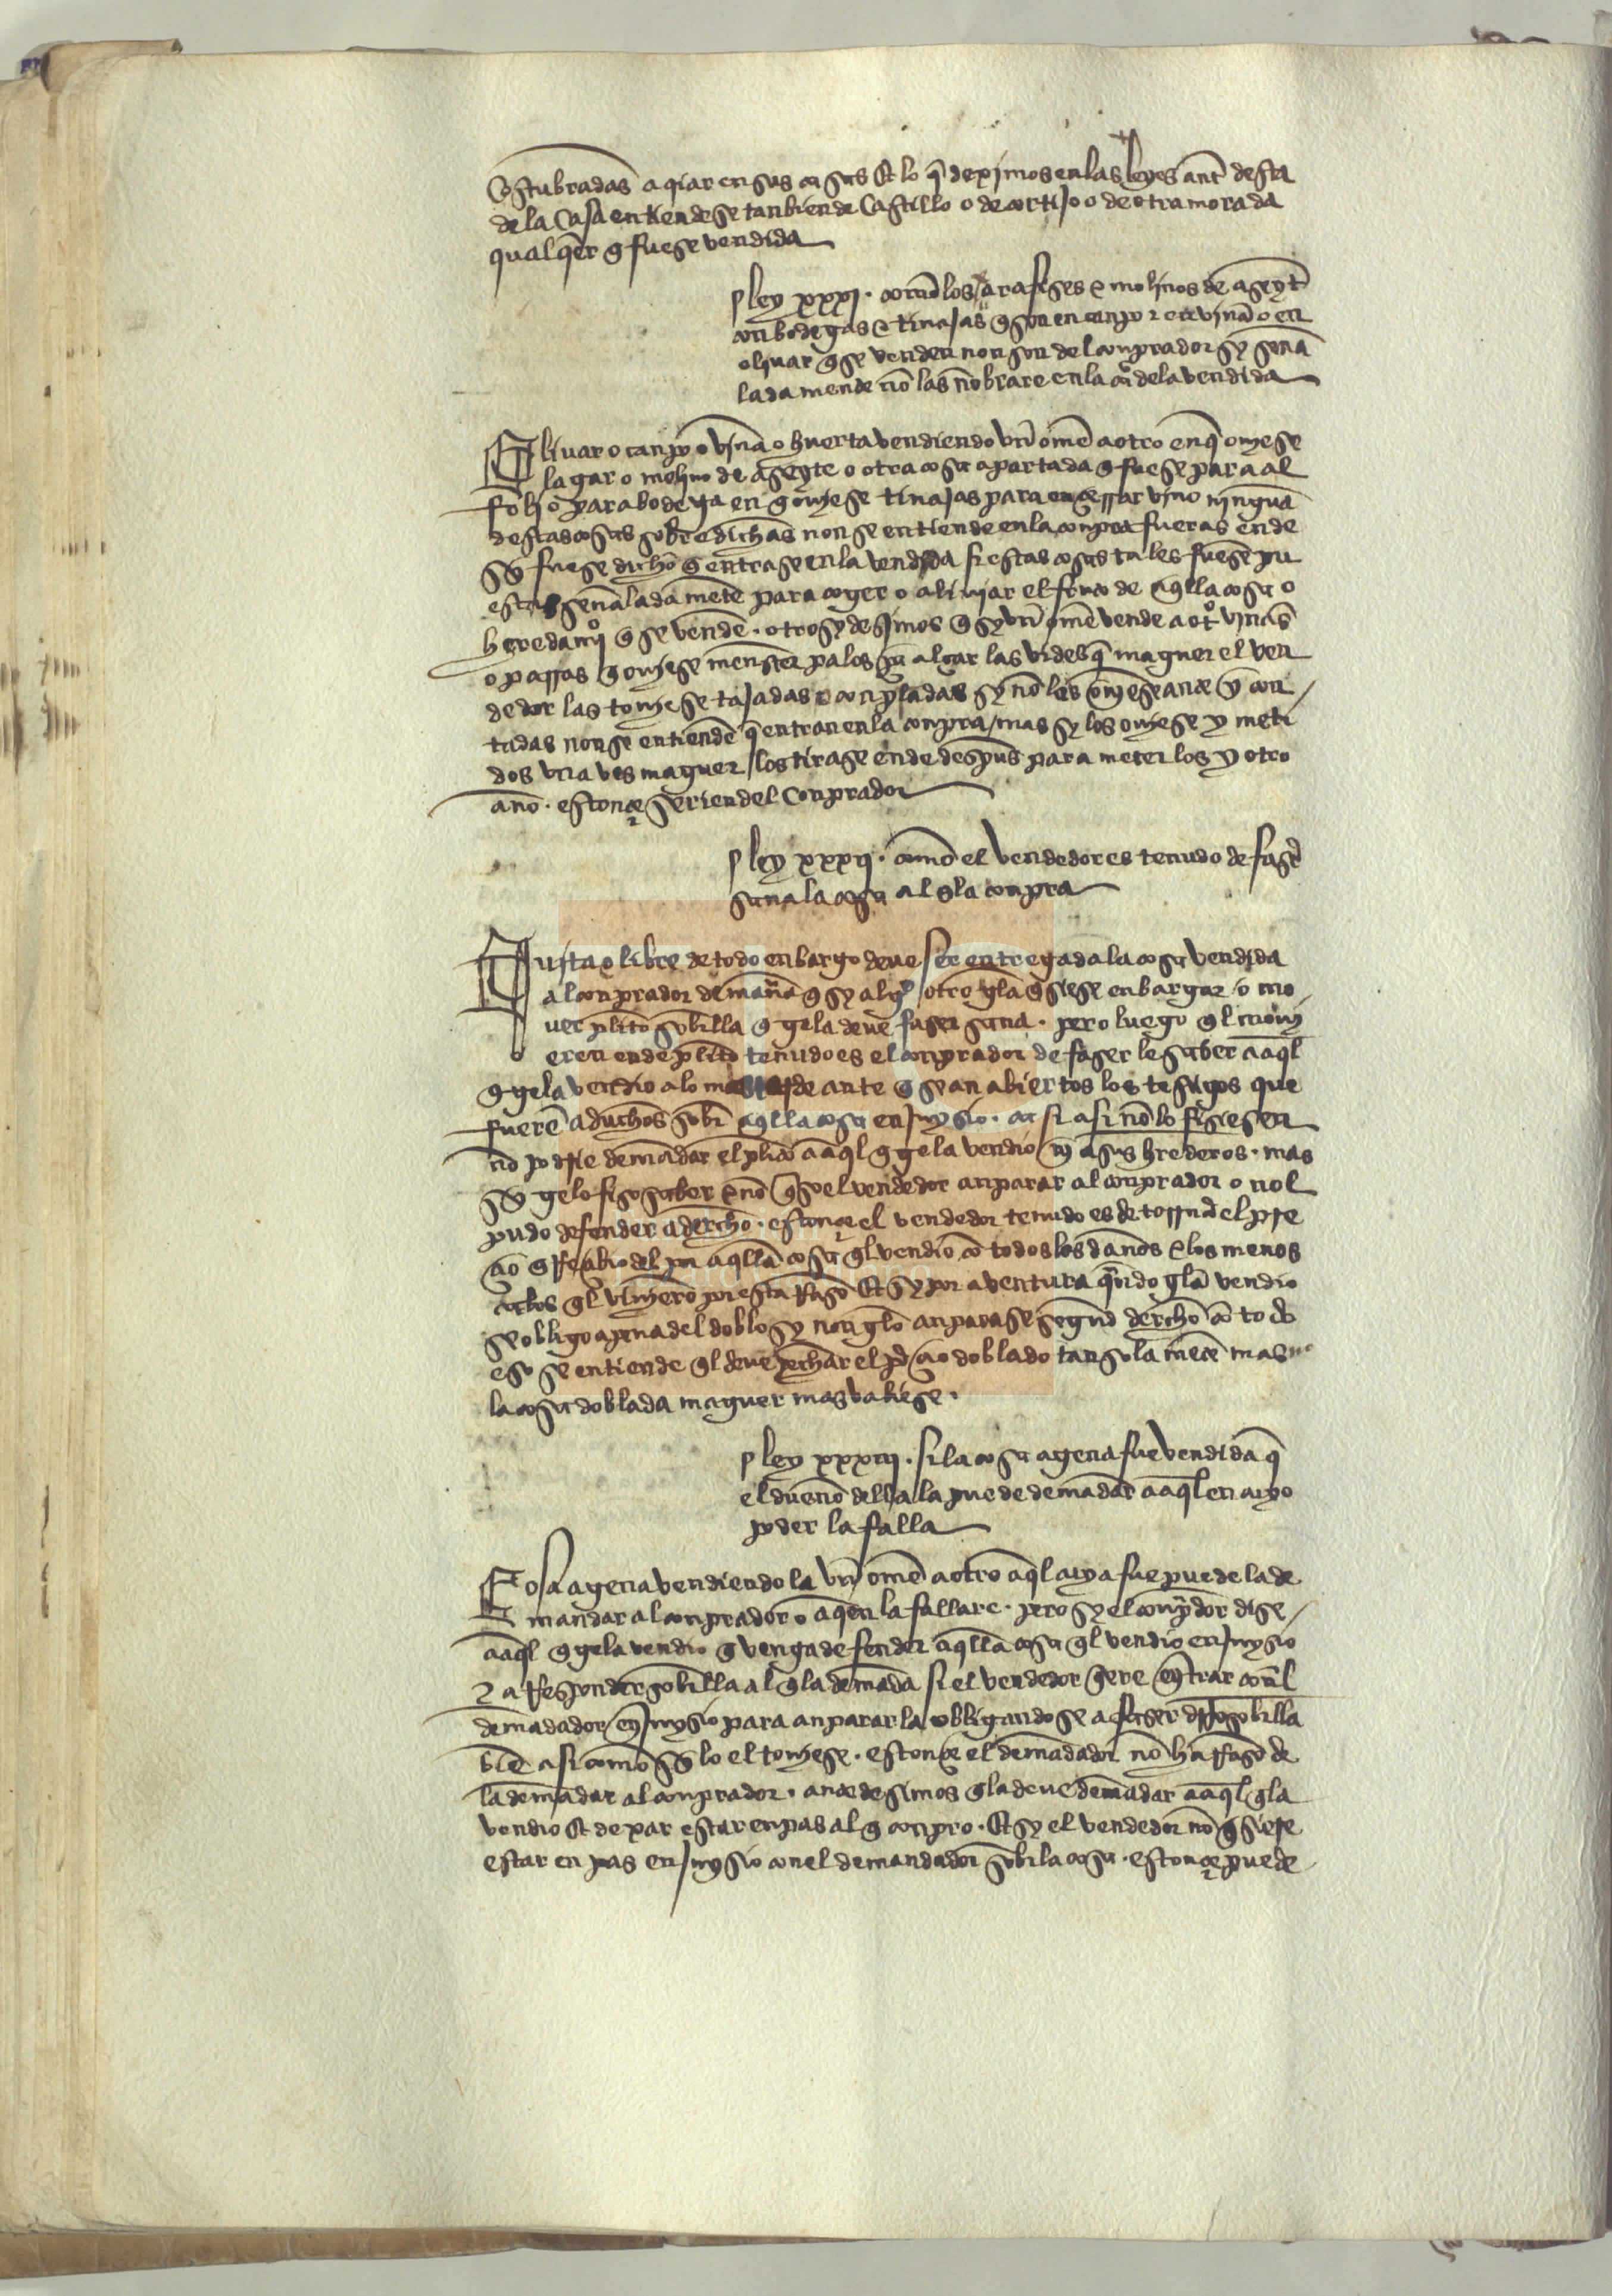 Costubradas a criar en sus casas Et lo q̄ deximos en las leyes ant̄ desta
de la Casa entiendese tanbien de Castillo o de cortijo o de otra morada
qual q̄er q̄ fuese vendida
ley xxxj. como los xarafises e molinos de aseyt̄
con bodegas e tinajas q̄ son en canpo e en viña o en
olivar q̄ se venden non son del conprador sy seña
lada mente nō las nōbrare en la cā de la vendida
Olivar o canpo o viña o huerta vendiendo vn̄ omē a otro en q̄ oviese
lagar o molino de aseyte o otra cosa apartada q̄ fuese para al
folio para bodega en q̄ oviese tinajas para ençerrar vino ninguā
destas cosas sobredichas non se entiende en la conpra fueras ende
sy fuese dicho q̄ entrase en la vendida si estas cosas tales fuesē pu
estas señalada mētē para coger o aliniar el fruto de aq̄lla cosa o
heredamiº q̄ se vendē. otrosy desimos q̄ sy vn̄ omē vende a otº viñas
o parras q̄ oviese menester palos pa alçar las vides q̄ maguer el ven
dedor las toviese tajadas o conpradas sy nō les oviese ançe y con
tadas non se entiendē q̄ entran en la conpra / mas sy los oviese y meti
dos vna ves maguer los tirase ende despues para meter los y otro
año. estonçe serien del Conprador
ley xxxij. como el vendedor es tenudo de faser
sana la cosa al q̄ la conpra
Quita e libre de todo enbargo deve ser entregada la cosa vendida
al conprador de manā q̄ sy algº otro gela q̄siese enbargar o mo
ver plito sobrella q̄ gela deve faser sana. pero luego q̄l movi
eren ende plito tenudo es el conprador de faser le saber a aq̄l
q̄ gela vendio a lo mas tarde ante q̄ sean abiertos los testigos que
fuerē aduchos sobr̄ aq̄lla cosa en juysio. ca si asi nō lo fisiesen
nō podrie demādar el plito a aq̄l q̄ gela vendio ni a sus herederos. mas
sy gelo fiso saber e nō q̄so el vendedor anparar al conprador o nol
pudo defender a derecho. estonçe el vendedor tenudo es de tornar el pre
çio q̄ resçibio del por aq̄lla cosa q̄l vendio cō todos los daños e los menos
cabos q̄l vinierō por esta rasō Et sy por aventura q̄ndo gela vendio
se obligo a pena del doblo sy non gelo anparase segūd derecho cō todo
eso se entiende q̄l deve pechar el preçio doblado tan sola mētē mas nō
la cosa doblada maguer mas valiese.
ley xxxiij. si la cosa agena fue vendida q̄
el dueño della la puede demādar a aq̄l en cuyo
poder la falla
Cosa agena vendiendo la vn̄ omē a otro aq̄l cuya fue puede la de
mandar al conprador o a q̄en la fallare. pero sy el conp̄dor dise
a aq̄l q̄ gela vendio q̄ venga defender aq̄lla cosa q̄l vendio en juysio
e a responder sobrella al q̄ la demāda si el vendedor q̄ere entrar con el
demādador en juysio para anparar la obligandose a faser derecho sobrella
biē asi como sy lo el toviese. estonçe el demādador nō ha rasō de
la demādar al conprador. ançe desimos q̄ la deve demādar a aq̄l q̄ la
vendio Et dexar estar en pas al q̄ conpro. Et sy el vendedor nō q̄siese
estar en pas en juysio con el demandador sobr la cosa. estonçe puede